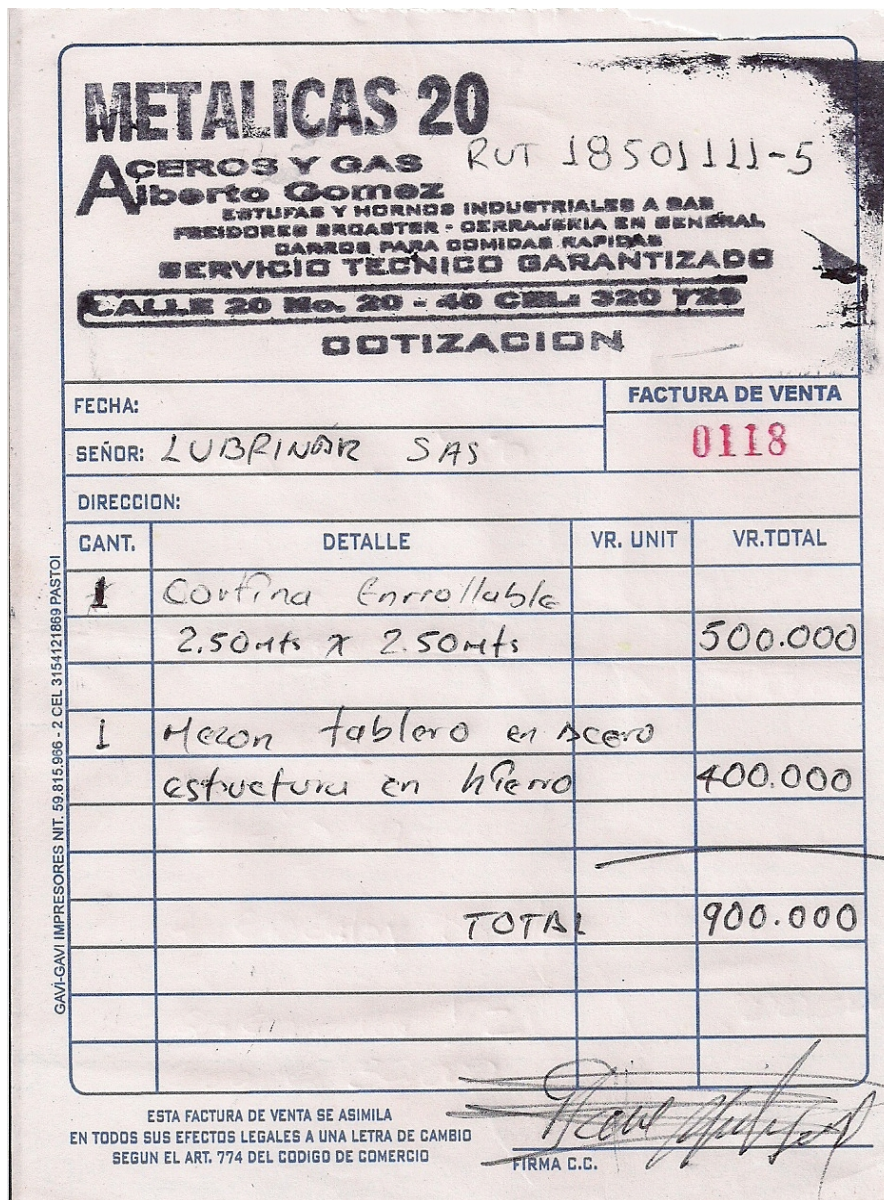 METALICAS 20
RUT 18501111-5
ACEROS Y GAS
Alberto Gomez
ESTUFAS Y HORNOS INDUSTRIALES A GAS
FREIDORES BROASTER - CERRAJERIA EN GENERAL
CARROS PARA COMIDAS RAPIDAS
SERVICIO TECNICO GARANTIZADO
CALLE 20 No. 20 - 40 CEL: 320 729
COTIZACION
FECHA:
FACTURA DE VENTA
0118
SEÑOR: LUBRINAR SAS
DIRECCION:
CANT. DETALLE VR. UNIT VR.TOTAL
1 Cortina Enrrollable
2.50mts x 2.50mts 500.000
1 Mezon tablero en acero
estructura en hierro 400.000
TOTAL 900.000
GAVI-GAVI IMPRESORES NIT. 59.815.966 - 2 CEL 3154121869 PASTOI
ESTA FACTURA DE VENTA SE ASIMILA
EN TODOS SUS EFECTOS LEGALES A UNA LETRA DE CAMBIO
SEGUN EL ART. 774 DEL CODIGO DE COMERCIO
FIRMA C.C.